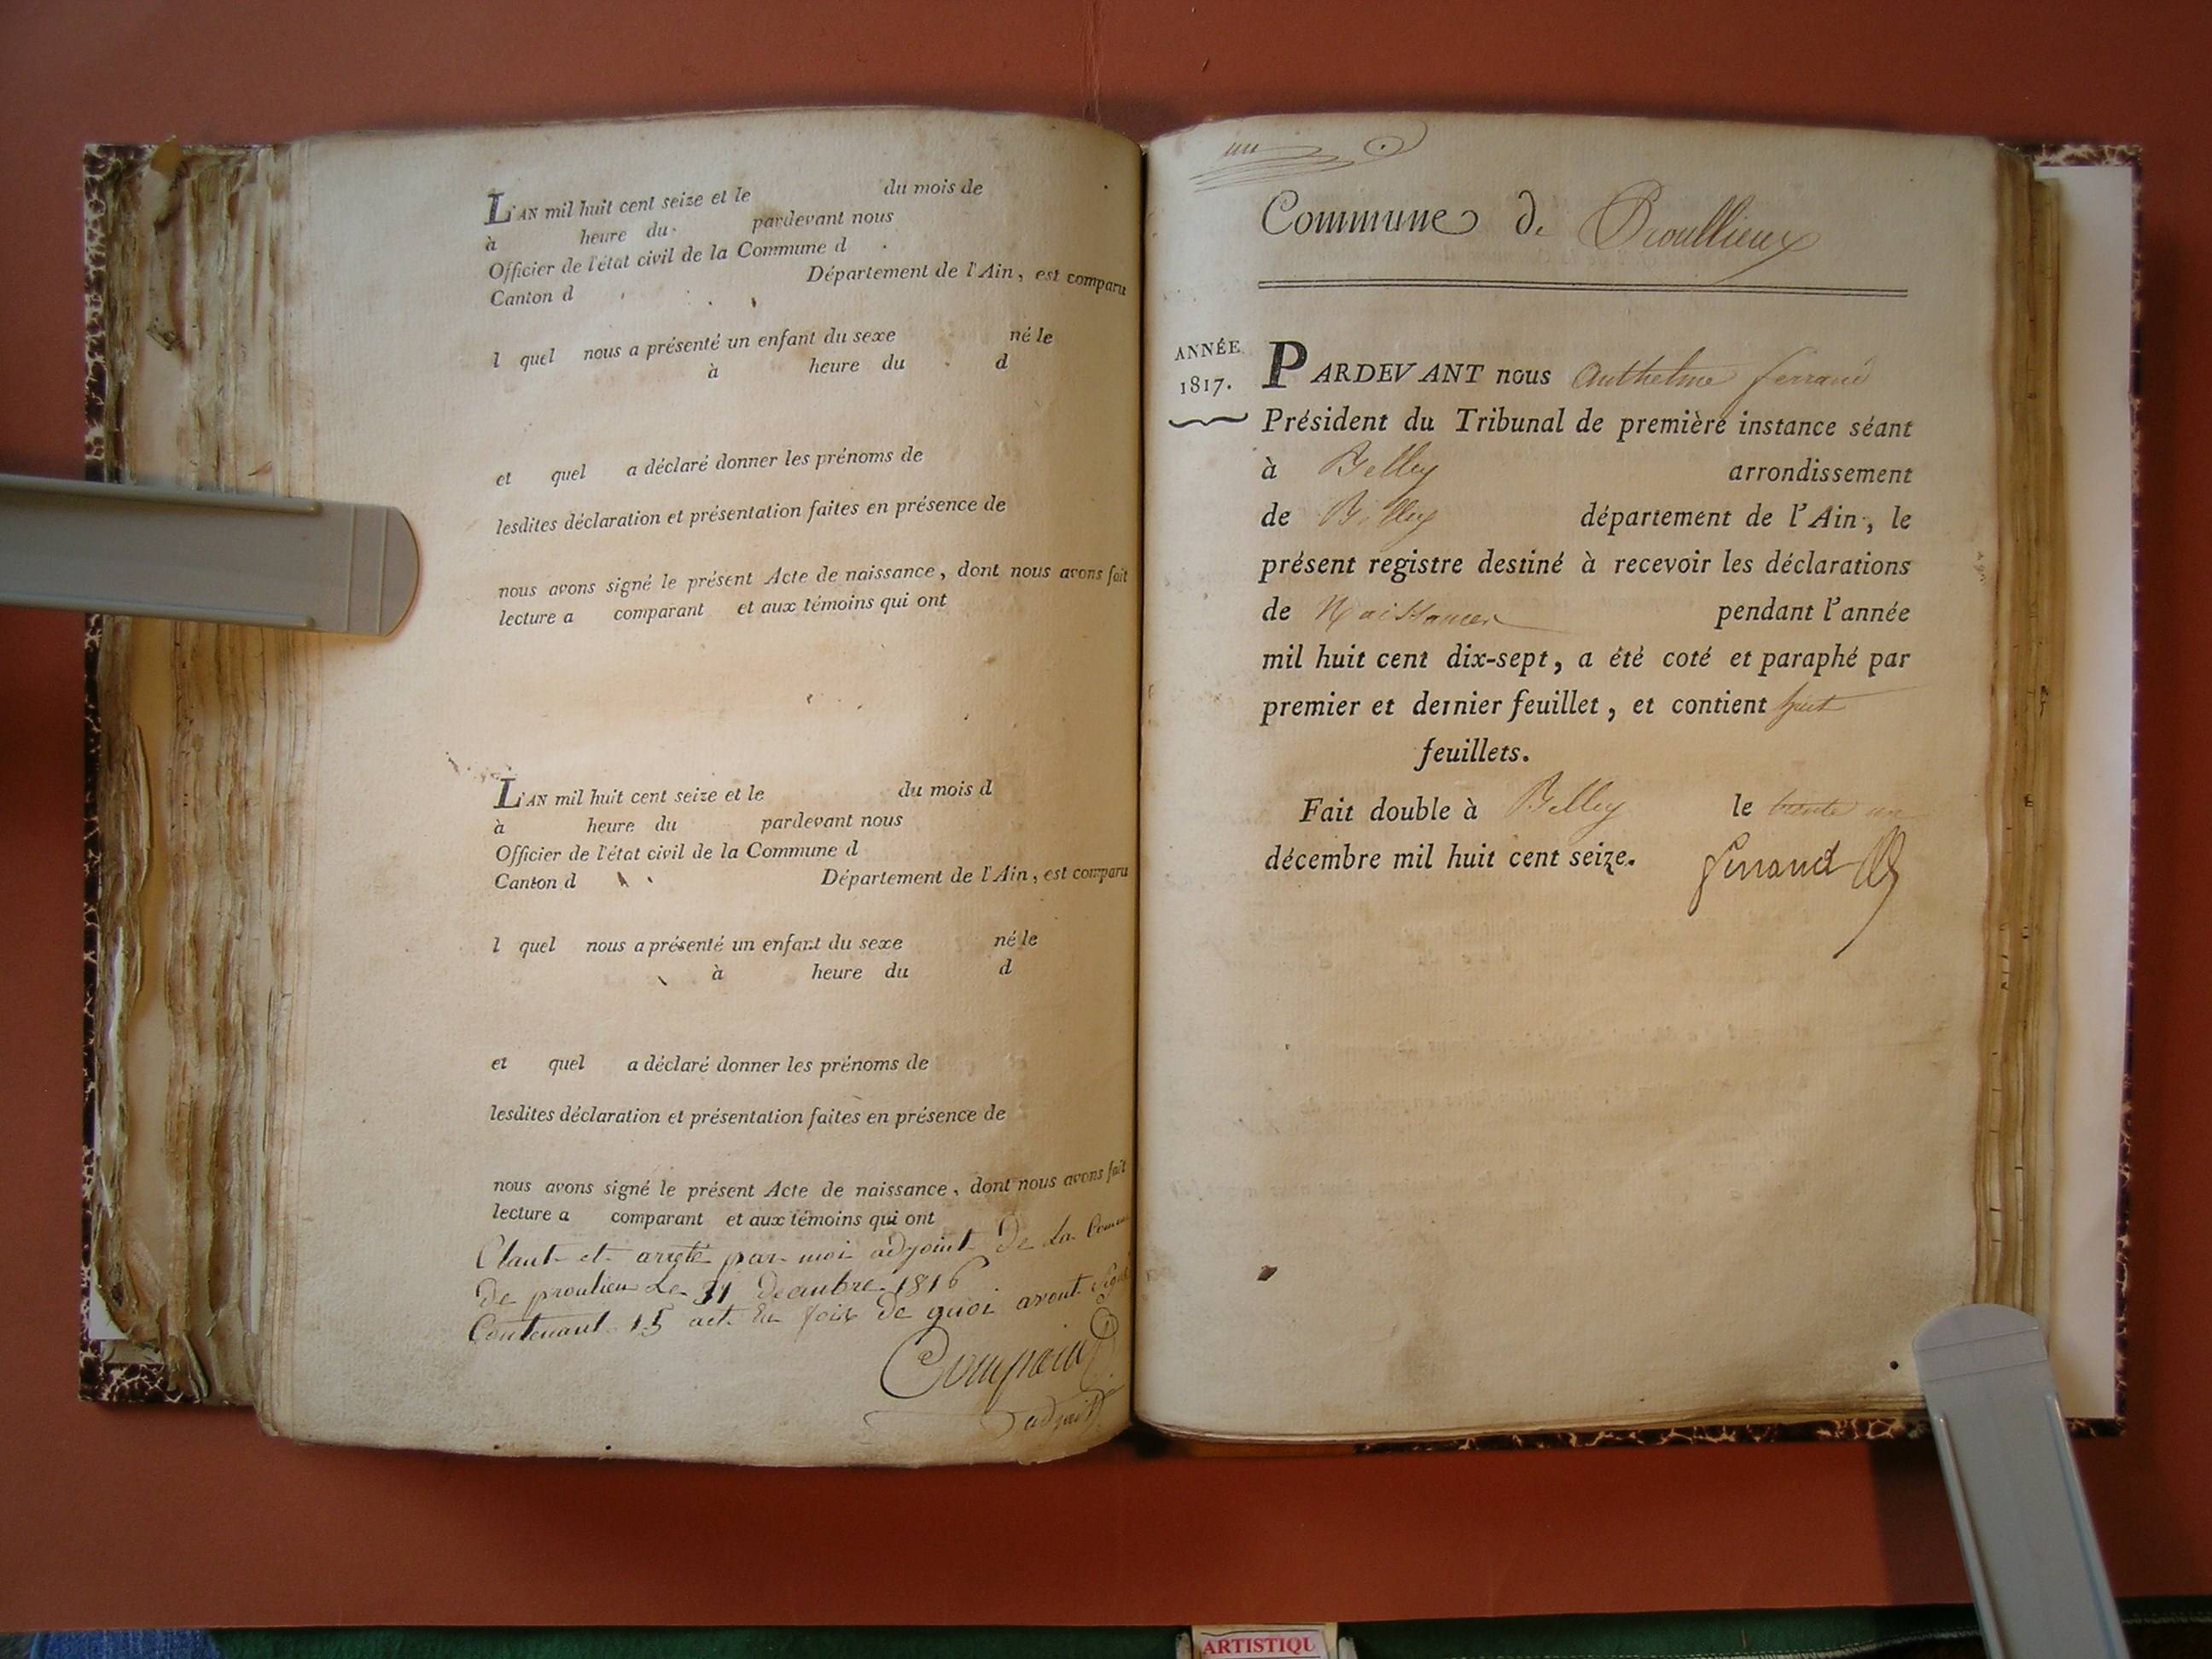 L'AN mil huit cent seize et le du mois de
à heure du pardevant nous
Officier de l'état civil de la Commune d
Canton d Département de l'Ain, est comparu
l quel nous a présenté un enfant du sexe né le
à heure du d
et quel a déclaré donner les prénoms de
lesdites déclaration et présentation faites en présence de
nous avons signé le présent Acte de naissance, dont nous avons fait
lecture a comparant et aux témoins qui ont
L'AN mil huit cent seize et le du mois d
à heure du pardevant nous
Officier de l'état civil de la Commune d
Canton d Département de l'Ain, est comparu
l quel nous a présenté un enfant du sexe né le
à heure du d
et quel a déclaré donner les prénoms de
lesdites déclaration et présentation faites en présence de
nous avons signé le présent Acte de naissance, dont nous avons fait
lecture a comparant et aux témoins qui ont
Claut et arreté par moi adjoint de La
de proulieu Le 31 1816
Contenant 15 act En foix de quoi avont
adjoint
un
Commune de Proullieux
ANNÉE
1817.
PARDEVANT nous Anthelme ferrand
Président du Tribunal de première instance séant
à Belley arrondissement
de Belley département de l'Ain, le
présent registre destiné à recevoir les déclarations
de Naissances pendant l'année
mil huit cent dix-sept, a été coté et paraphé par
premier et dernier feuillet, et contient huit
feuillets.
Fait double à Belley le trente un
décembre mil huit cent seize. ferrand
ARTISTIQU